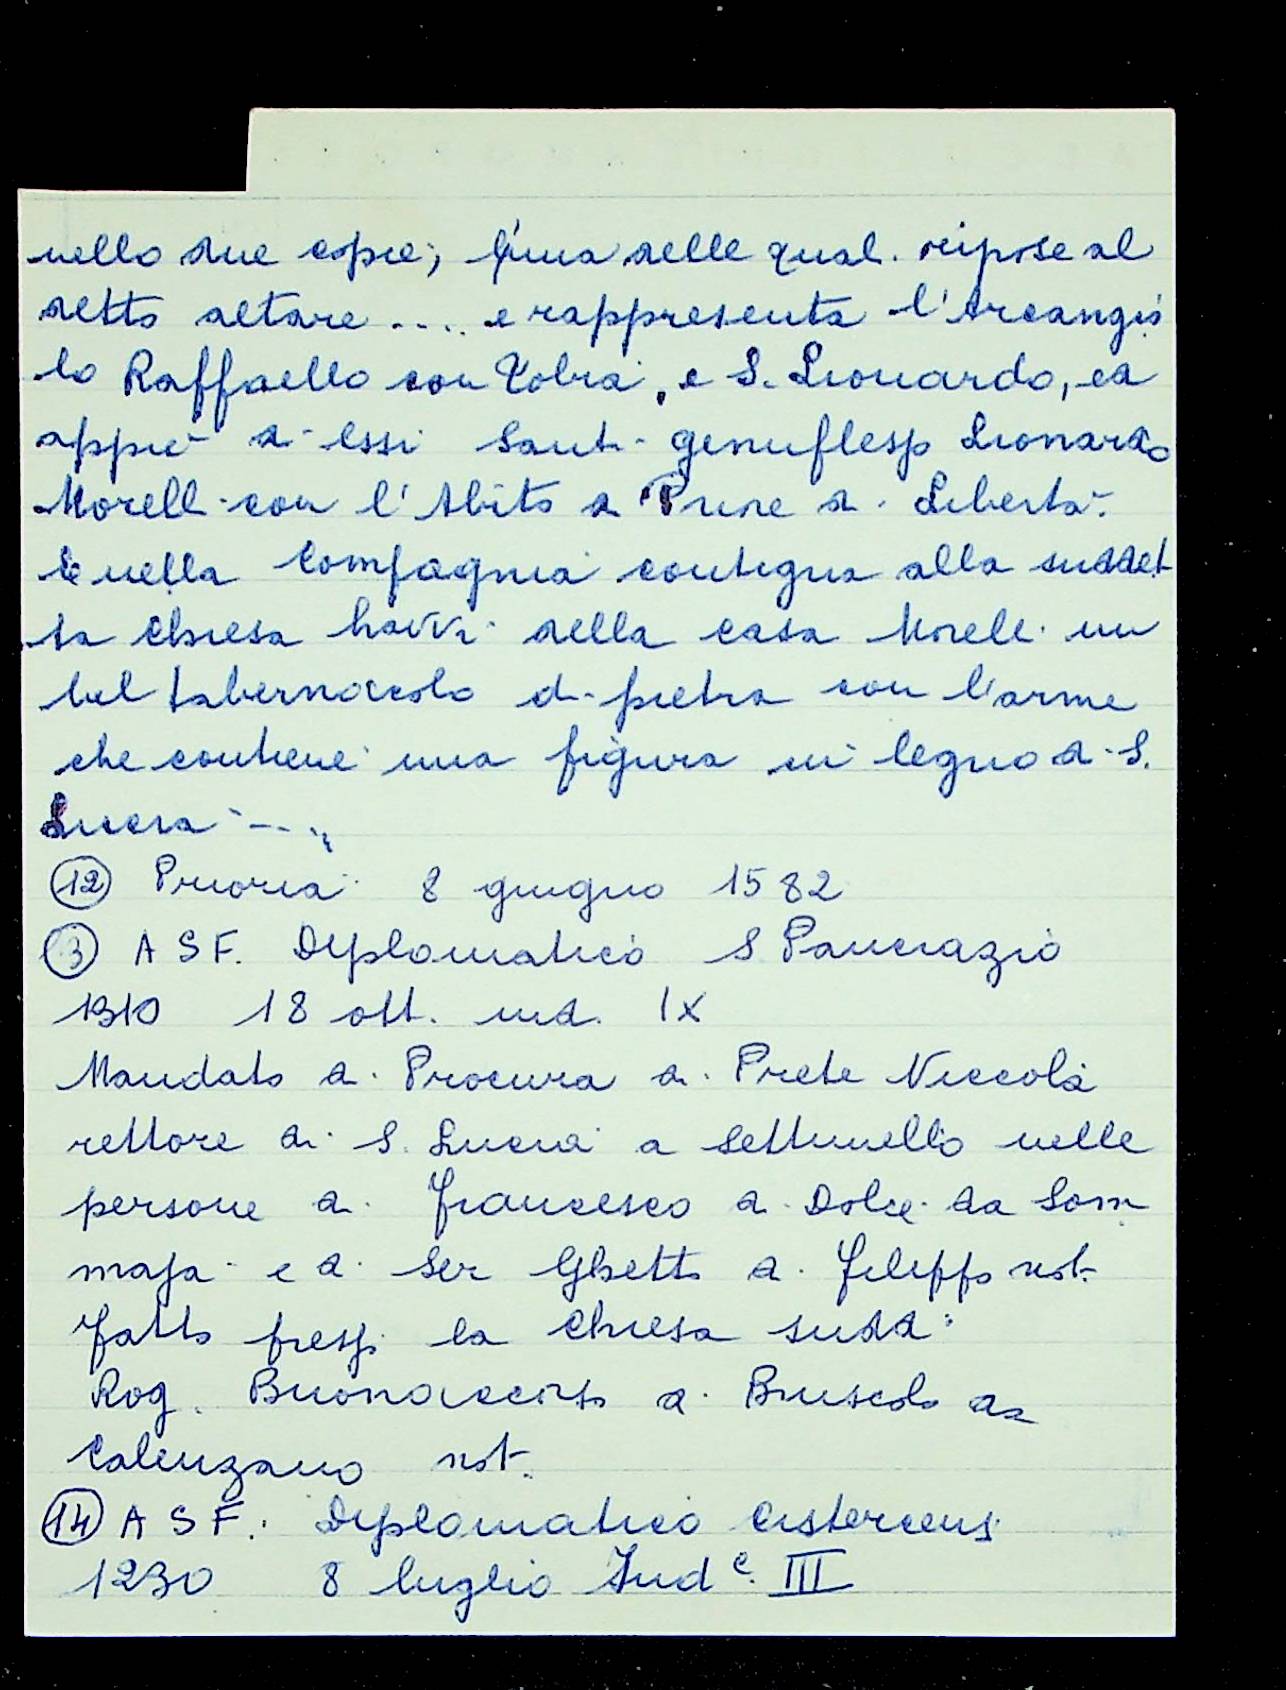 nello due copie; l'una delle quali ripose al
detto altare .... e rappresenta l'Arcangio
lo Raffaello con Tobia, e S. Lionardo, ed
appiè di essi Santi genuflesso Lionardo
Morelli con l'Abito di Priore di Libertà.
E nella Compagnia contigua alla suddet
ta Chiesa havvi della casa Morelli un
bel tabernacolo di pietra con l'arme
che contiene una figura in legno di S.
Lucia ....
(12) Prioria 8 giugno 1582
(13) A S F. Diplomatico S Pancrazio
1310 18 ott. ind. IX
Mandato di Procura di Prete Niccola
rettore di S. Lucia a Settimello nelle
persone di Francesco di Dolce da Som
maja e di Ser Ghetto di Filippo not.
fatto presso la Chiesa sudd:
Rog. Buonaccorso di Bruscolo da
Calenzano not.
(14) A S F. Diplomatico Cistercensi
1230 8 luglio Ind e. III